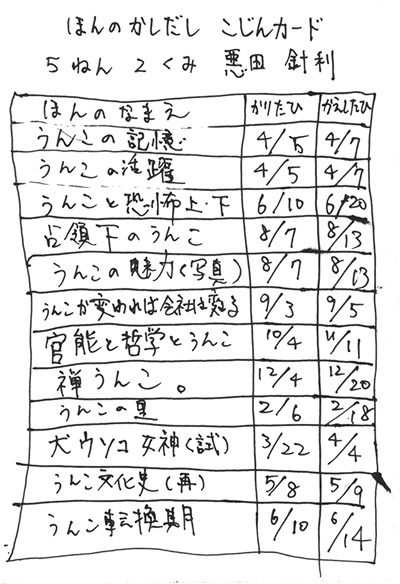 ほんのかしだし こじんカード
5ねん 2くみ 悪田 針利
ほんのなまえ かりたひ かえしたひ
うんこの記憶 4/5 4/7
うんこの活躍 4/5 4/7
うんこと恐怖上・下 6/10 6/20
占領下のうんこ 8/7 8/13
うんこの魅力(写真) 8/7 8/13
うんこが変われば会社は変る 9/3 9/5
官能と哲学とうんこ 10/4 11/11
禅うんこ。 12/4 12/20
うんこの里 2/6 2/18
犬ウンコ女神(試) 3/22 4/4
うんこ文化史(再) 5/8 5/9
うんこ転換期 6/10 6/14